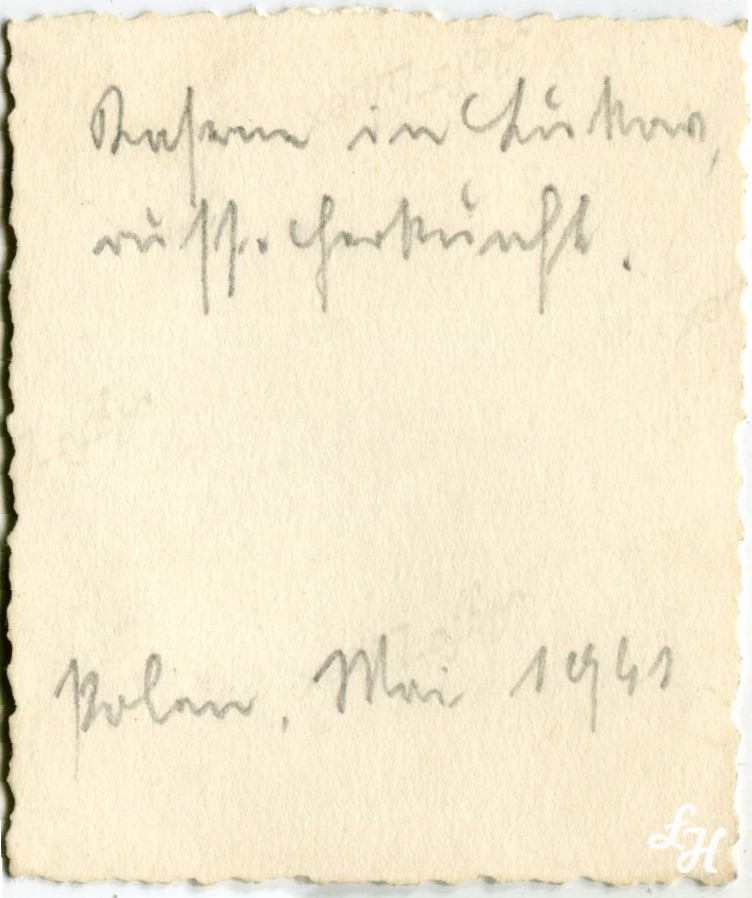 Kaserne in Lukow,
russ. Herkunft.
Polen, Mai 1941
LH